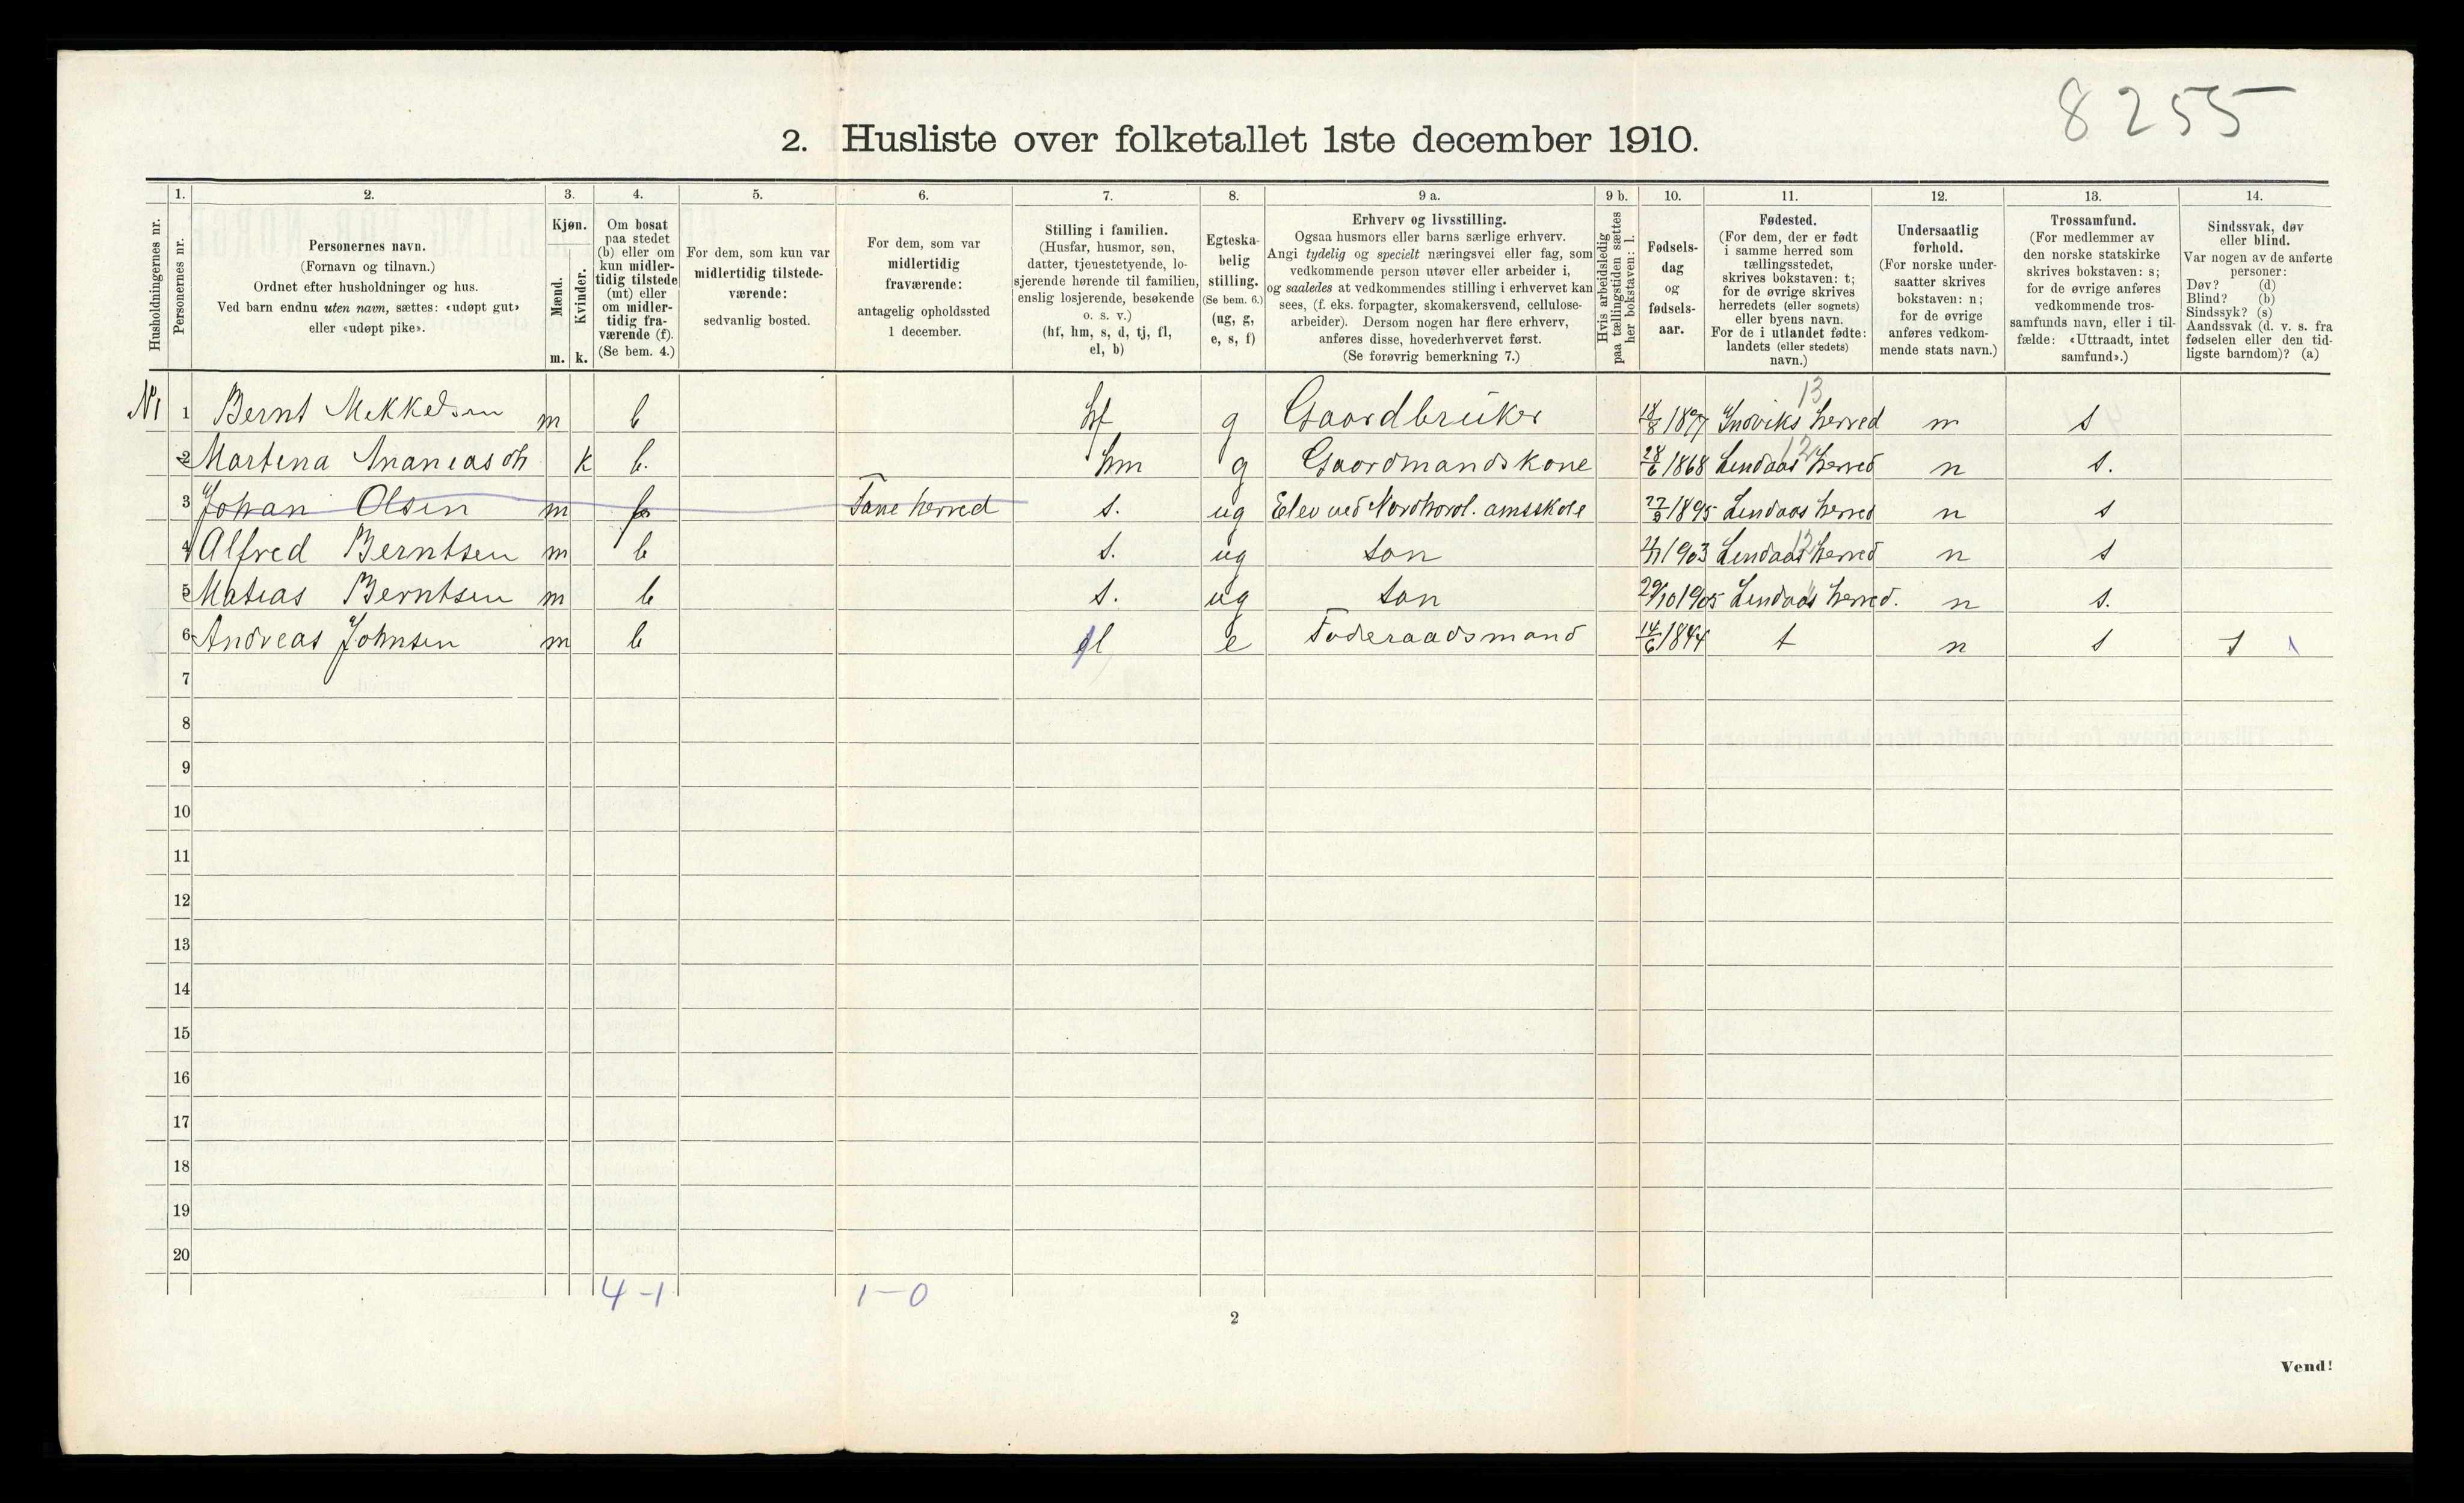 8255
2. Husliste over folketallet 1ste december 1910.
1. 2. 3. 4. 5. 6. 7. 8. 9 a. 9 b. 10. 11. 12. 13. 14.
Husholdningernes nr.
Personernes nr.
Personernes navn.
(Fornavn og tilnavn.)
Ordnet efter husholdninger og hus.
Ved barn endnu uten navn, sættes: «udøpt gut»
eller «udøpt pike».
Kjøn.
Mænd.
Kvinder.
m. k.
Om bosat
paa stedet
(b) eller om
kun midler-
tidig tilstede
(mt) eller
om midler-
tidig fra-
værende (f).
(Se bem. 4.)
For dem, som kun var
midlertidig tilstede-
værende:
sedvanlig bosted.
For dem, som var
midlertidig
fraværende:
antagelig opholdssted
1 december.
Stilling i familien.
(Husfar, husmor, søn,
datter, tjenestetyende, lo-
sjerende hørende til familien,
enslig losjerende, besøkende
o. s. v.)
(hf, hm, s, d, tj, fl,
el, b)
Egteska-
belig
stilling.
(Se bem. 6.)
(ug, g,
e, s, f)
Erhverv og livsstilling.
Ogsaa husmors eller barns særlige erhverv.
Angi tydelig og specielt næringsvei eller fag, som
vedkommende person utøver eller arbeider i,
og saaledes at vedkommendes stilling i erhvervet kan
sees, (f. eks. forpagter, skomakersvend, cellulose-
arbeider). Dersom nogen har flere erhverv,
anføres disse, hovederhvervet først.
(Se forøvrig bemerkning 7.)
Hvis arbeidsledig
paa tællingstiden sættes
her bokstaven: l.
Fødsels-
dag
og
fødsels-
aar.
Fødested.
(For dem, der er født
i samme herred som
tællingsstedet,
skrives bokstaven: t;
for de øvrige skrives
herredets (eller sognets)
eller byens navn.
For de i utlandet fødte:
landets (eller stedets)
navn.)
Undersaatlig
forhold.
(For norske under-
saatter skrives
bokstaven: n;
for de øvrige
anføres vedkom-
mende stats navn.)
Trossamfund.
(For medlemmer av
den norske statskirke
skrives bokstaven: s;
for de øvrige anføres
vedkommende tros-
samfunds navn, eller i til-
fælde: «Uttraadt, intet
samfund».)
Sindssvak, døv
eller blind.
Var nogen av de anførte
personer:
Døv? (d)
Blind? (b)
Sindssyk? (s)
Aandssvak (d. v. s. fra
fødselen eller den tid-
ligste barndom)? (a)
13
N1 1 Bernt Mekkelsen m b hf g Gaardbruker 18/8 Indviks herred n s
2 Martena Ananeasdh k b. hm g Gaardmandskone 28/6 1868 Lendaas herred 12 n s.
3 Johan Olsen m f Fane herred s. ug Elev ved Nordhordl. amsskole 1895 Lendaas herred n s
4 Alfred Berntsen m b s. ug søn 1903 Lendaas herred 12 n s
5 Mateas Berntsen m b s. ug søn 29/10 1905 Lendaas herred. n s.
6 Andreas Johnsen m b fl e Føderaadsmand 14/6 1844 t n s s 1
7
8
9
10
11
12
13
14
15
16
17
18
19
20
4-1 1-0
2
Vend!